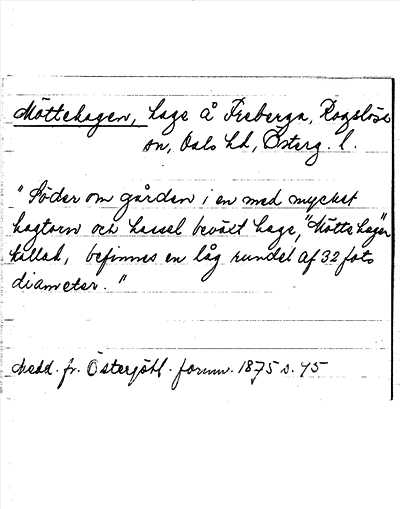 Möttehagen, hage å Freberga, Rogslösa
sn, Dals hd, Österg. l.
"Söder om gården i en med mycket
hagtorn och hassel beväxt hage, "Mötte hagen"
kallad, befinnes en låg rundel af 32 fots
diameter."
Medd. fr. Östergötl. fornm. 1875 s. 45